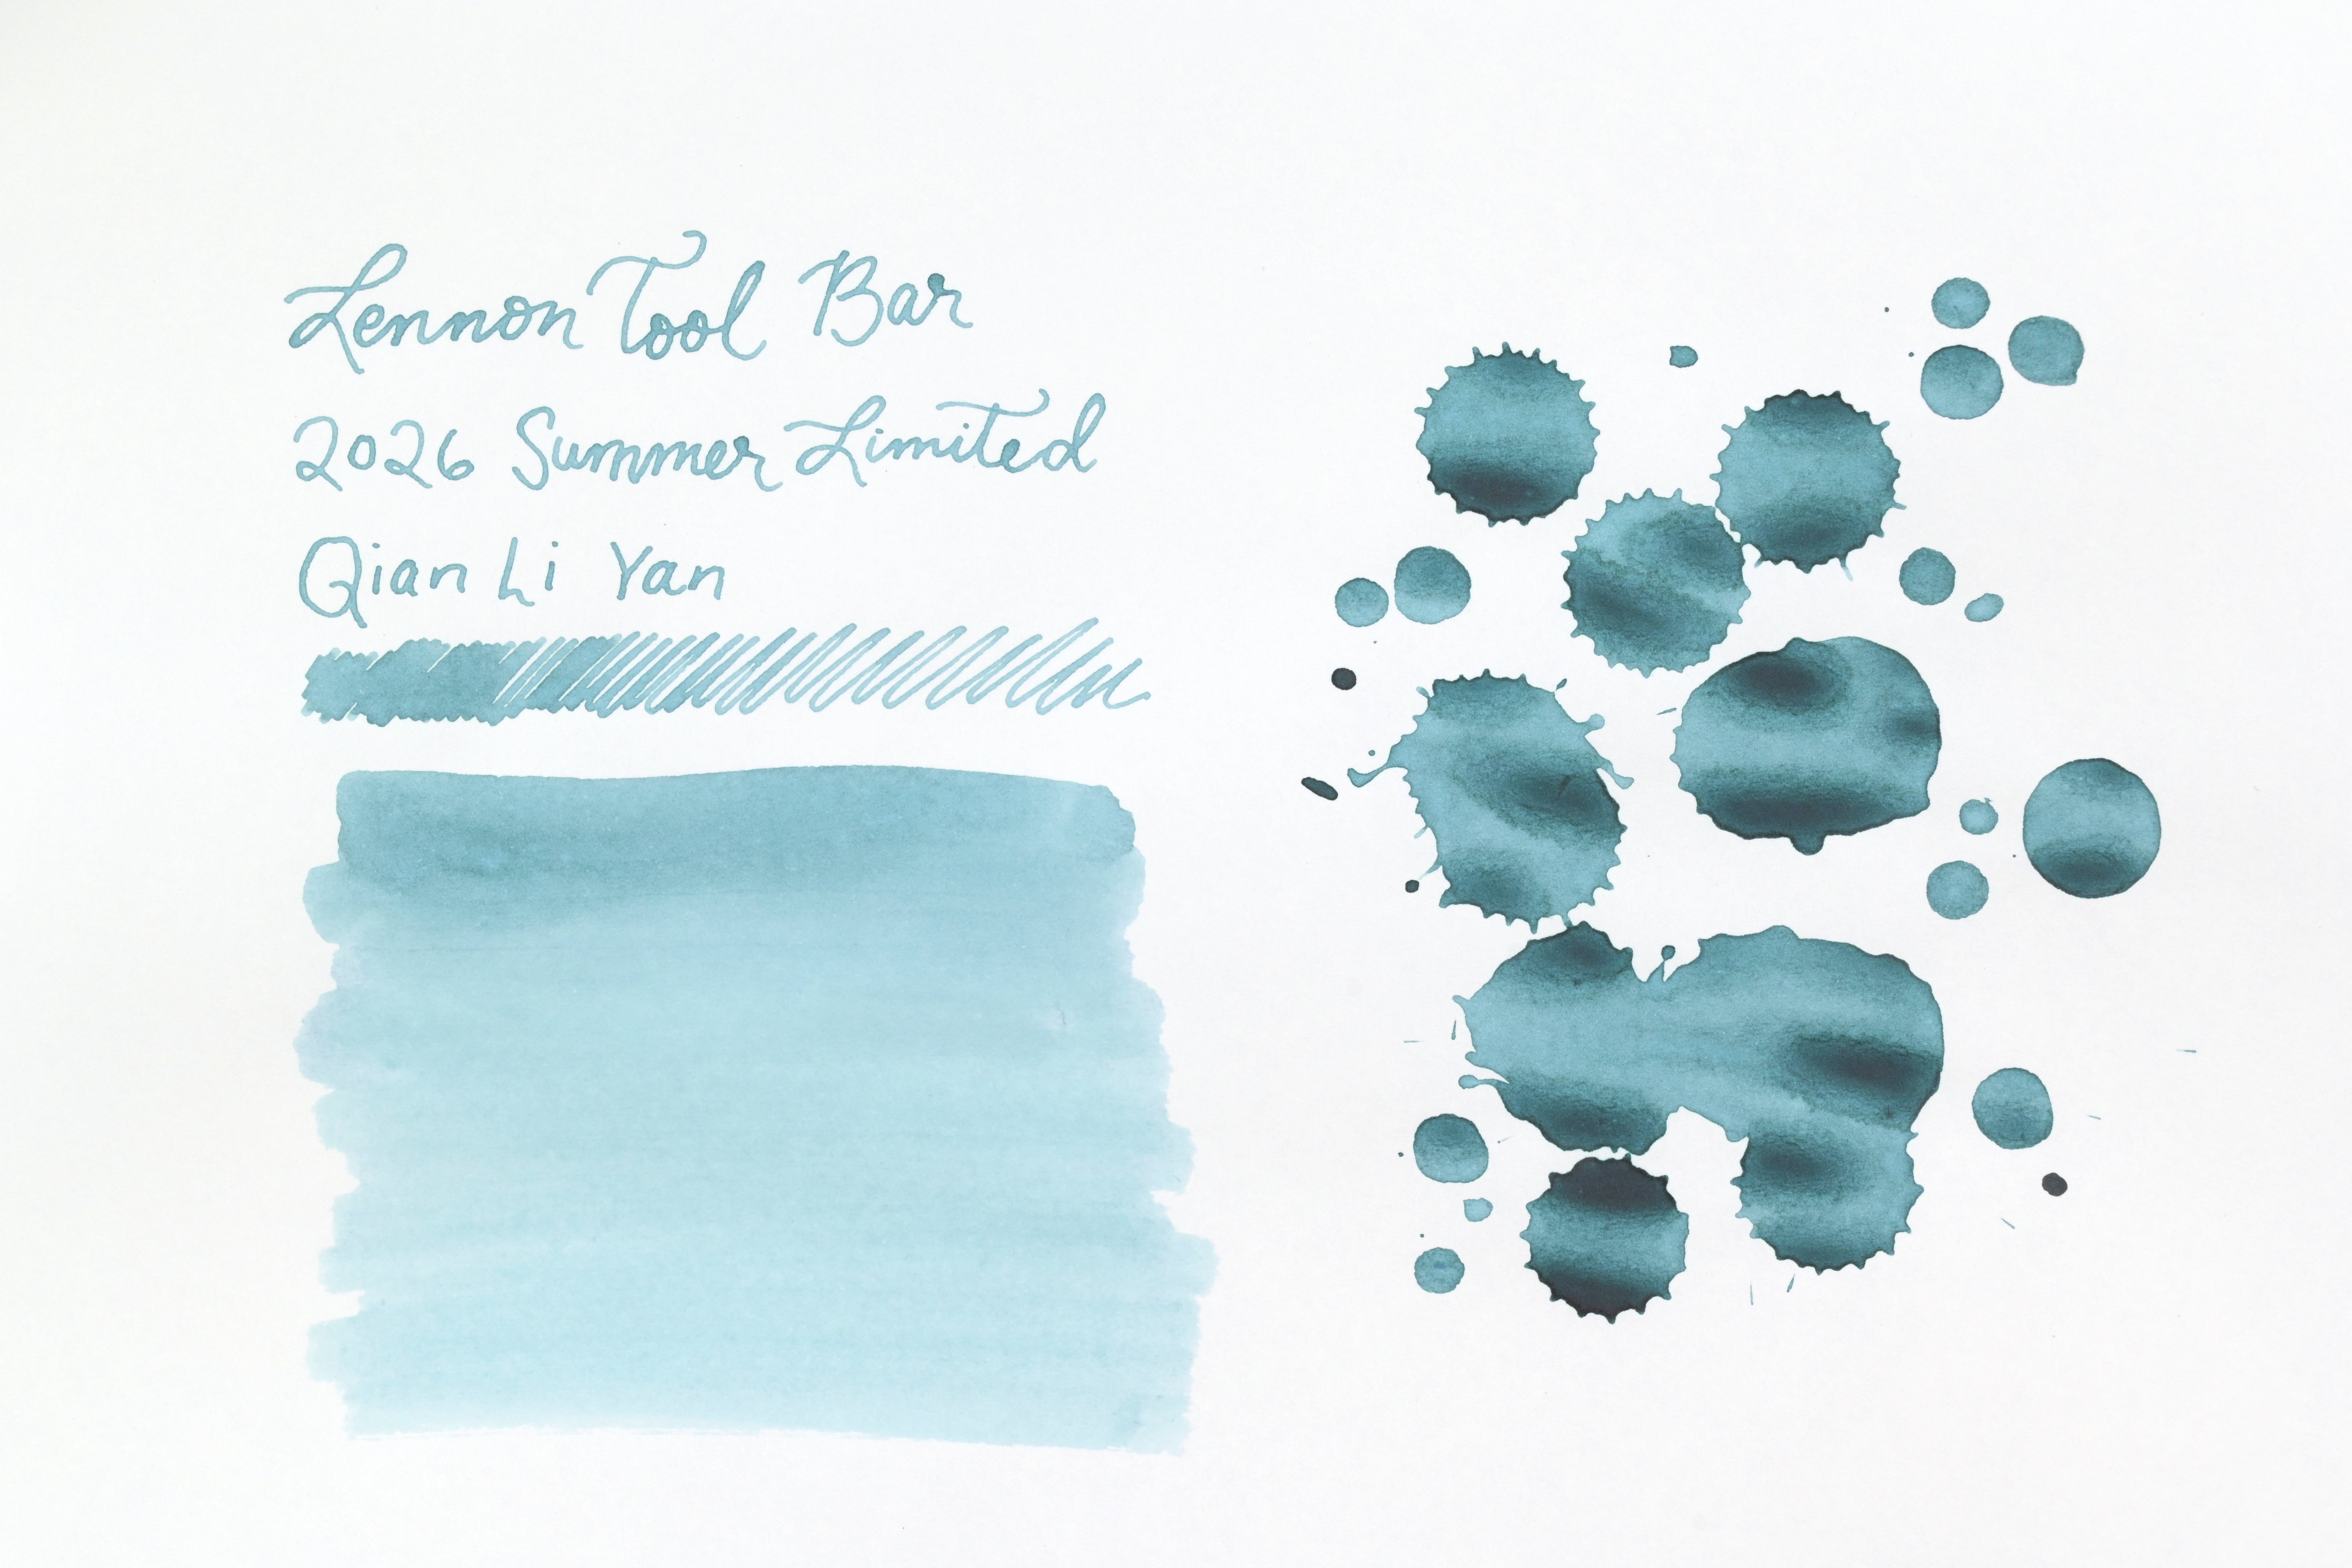 Lennon Tool Bar
2026 Summer Limited
Qian Li Yan